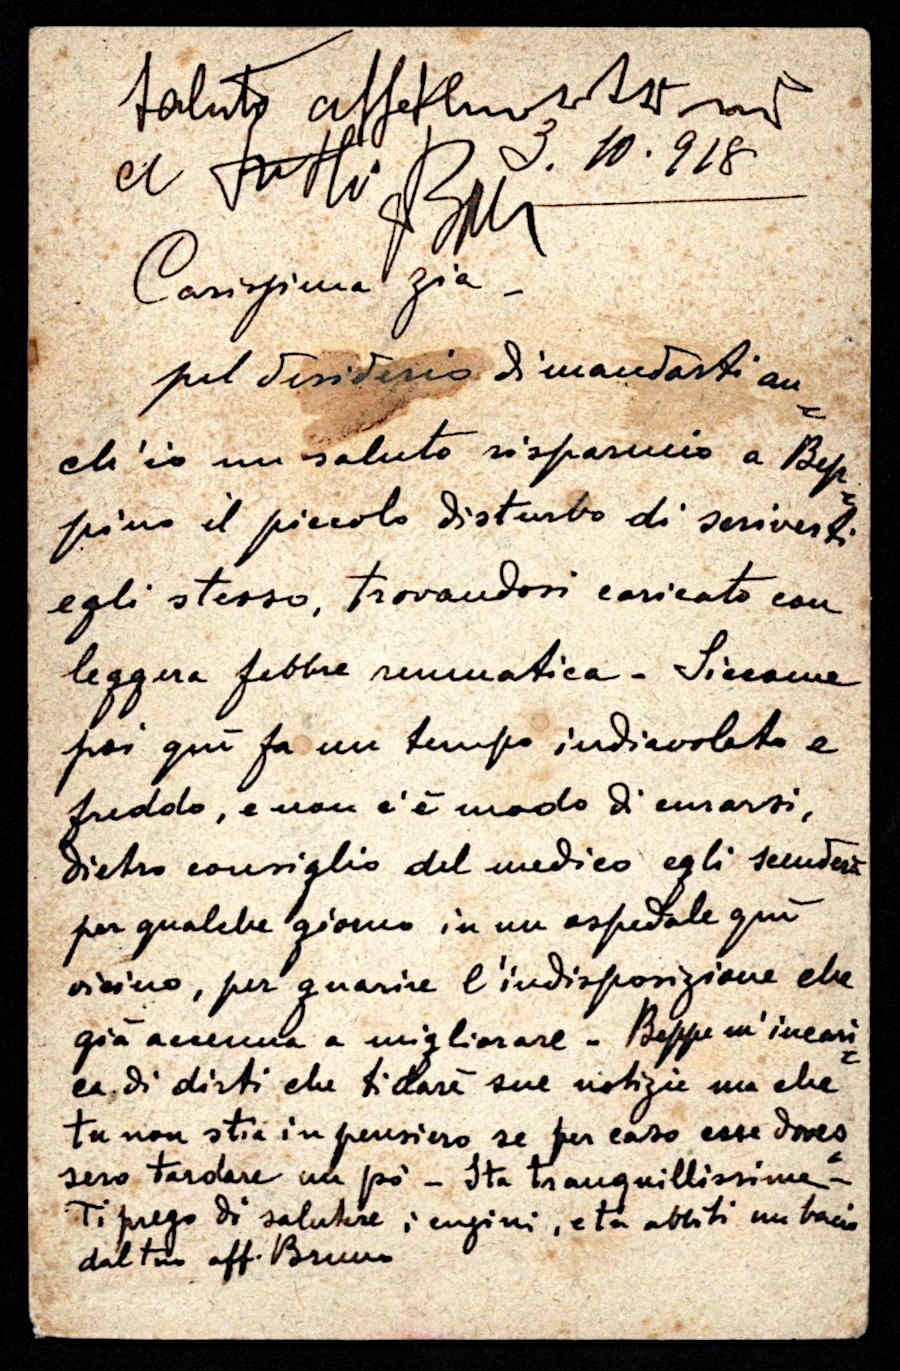 Saluto
a tutti 3. 10. 918
Carissima zia -
pel desiderio di mandarti an=
ch'io un saluto risparmio a Bep=
pino il piccolo disturbo di scriverti
egli stesso, trovandosi caricato con
leggera febbre reumatica - Siccome
poi quì fa un tempo indiavolato e
freddo, e non c'è modo di curarsi,
dietro consiglio del medico egli scenderà
per qualche giorno in un ospedale quì
vicino, per guarire l'indisposizione che
già accenna a migliorare - Beppe m'incari=
ca di dirti che ti darà sue notizie ma che
tu non stia in pensiero se per caso esse doves=
sero tardare un pò - Sta tranquillissima -
Ti prego di salutare i cugini, e tu abbiti un bacio
dal tuo aff. Bruno